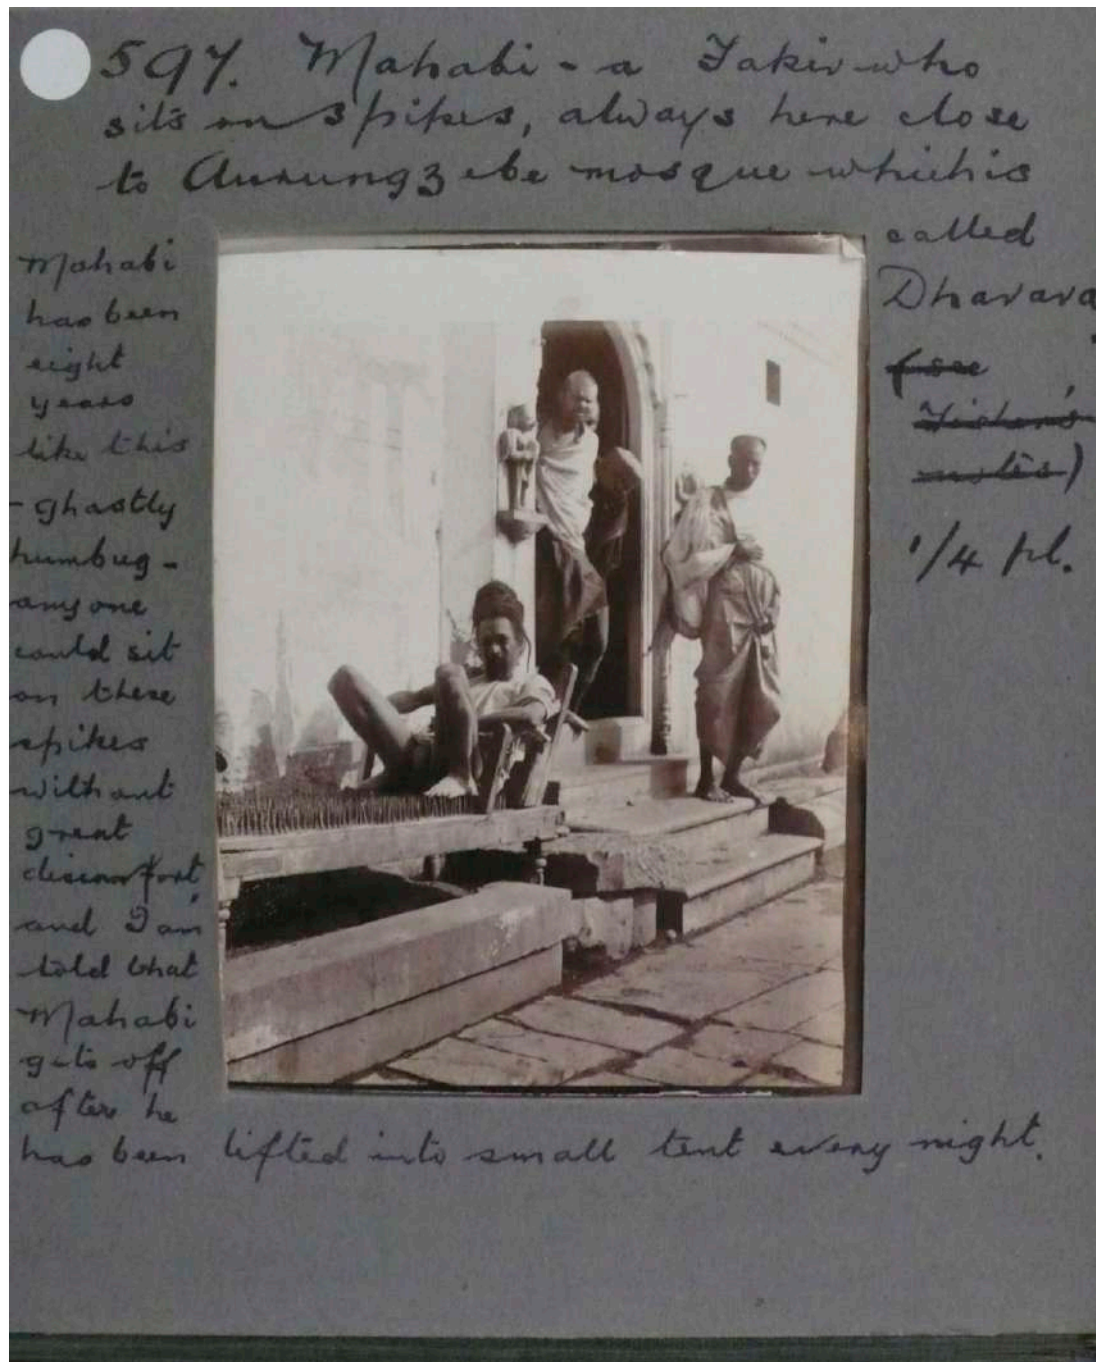 597. Mahabi - a Fakir who
sits on spikes, always here close
to Aurungzebe mosque which is
called
Dharara
(see
Fisher's
notes)
1/4 pl.
Mahabi
has been
eight
years
like this
- ghastly
humbug -
any one
could sit
on these
spikes
without
great
discomfort,
and I am
told that
Mahabi
gets off
after he
has been lifted into small tent every night.